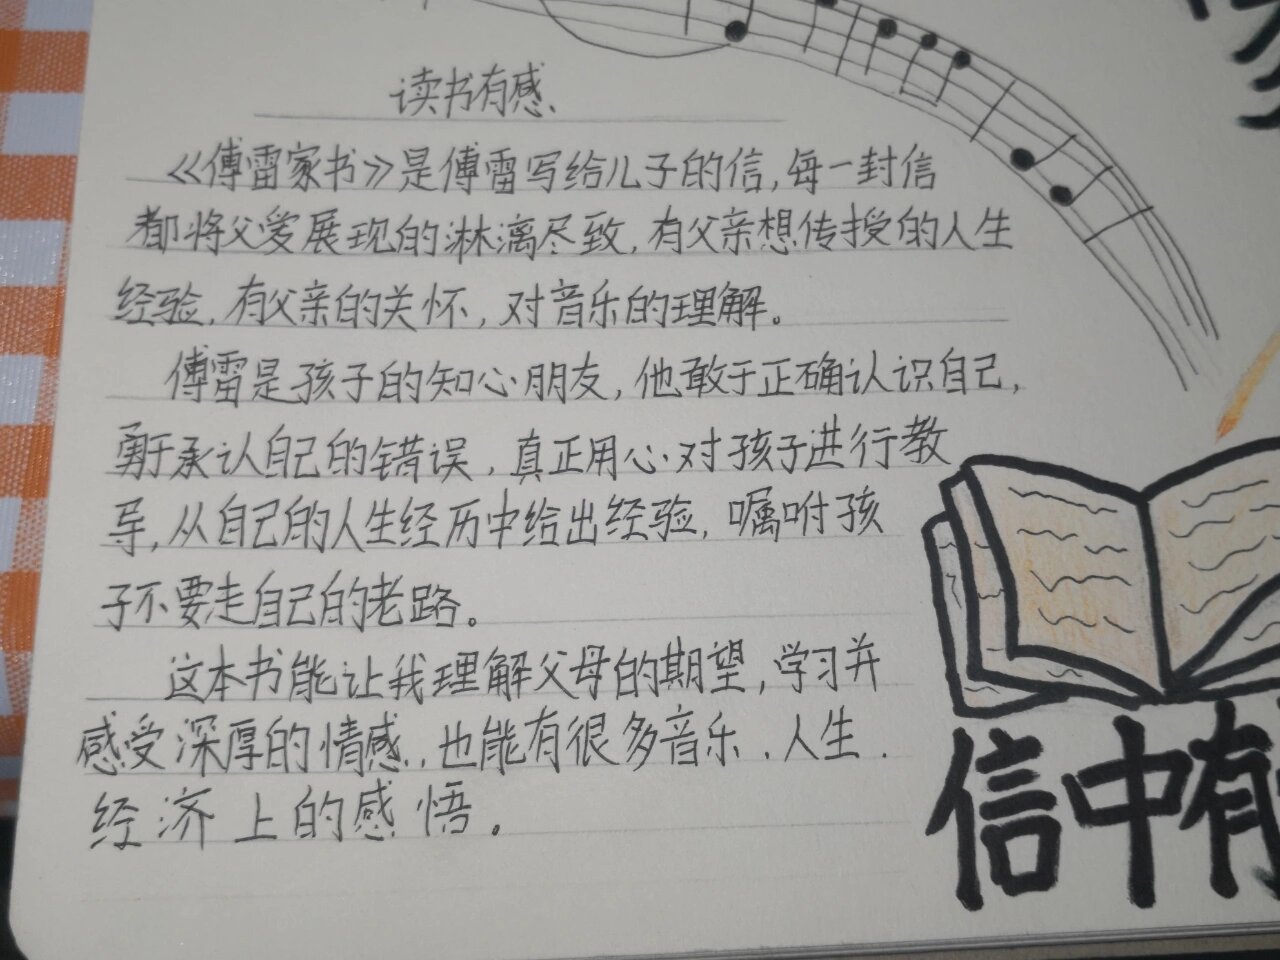 读书有感、
《傅雷家书》是傅雷写给儿子的信,每一封信
都将父爱展现的淋漓尽致,有父亲想传授的人生
经验,有父亲的关怀,对音乐的理解。
傅雷是孩子的知心朋友,他敢于正确认识自己,
勇于承认自己的错误,真正用心对孩子进行教
导,从自己的人生经历中给出经验,嘱咐孩
子不要走自己的老路。
这本书能让我理解父母的期望,学习并
感受深厚的情感.,也能有很多音乐、人生、
经济上的感悟。
信中有